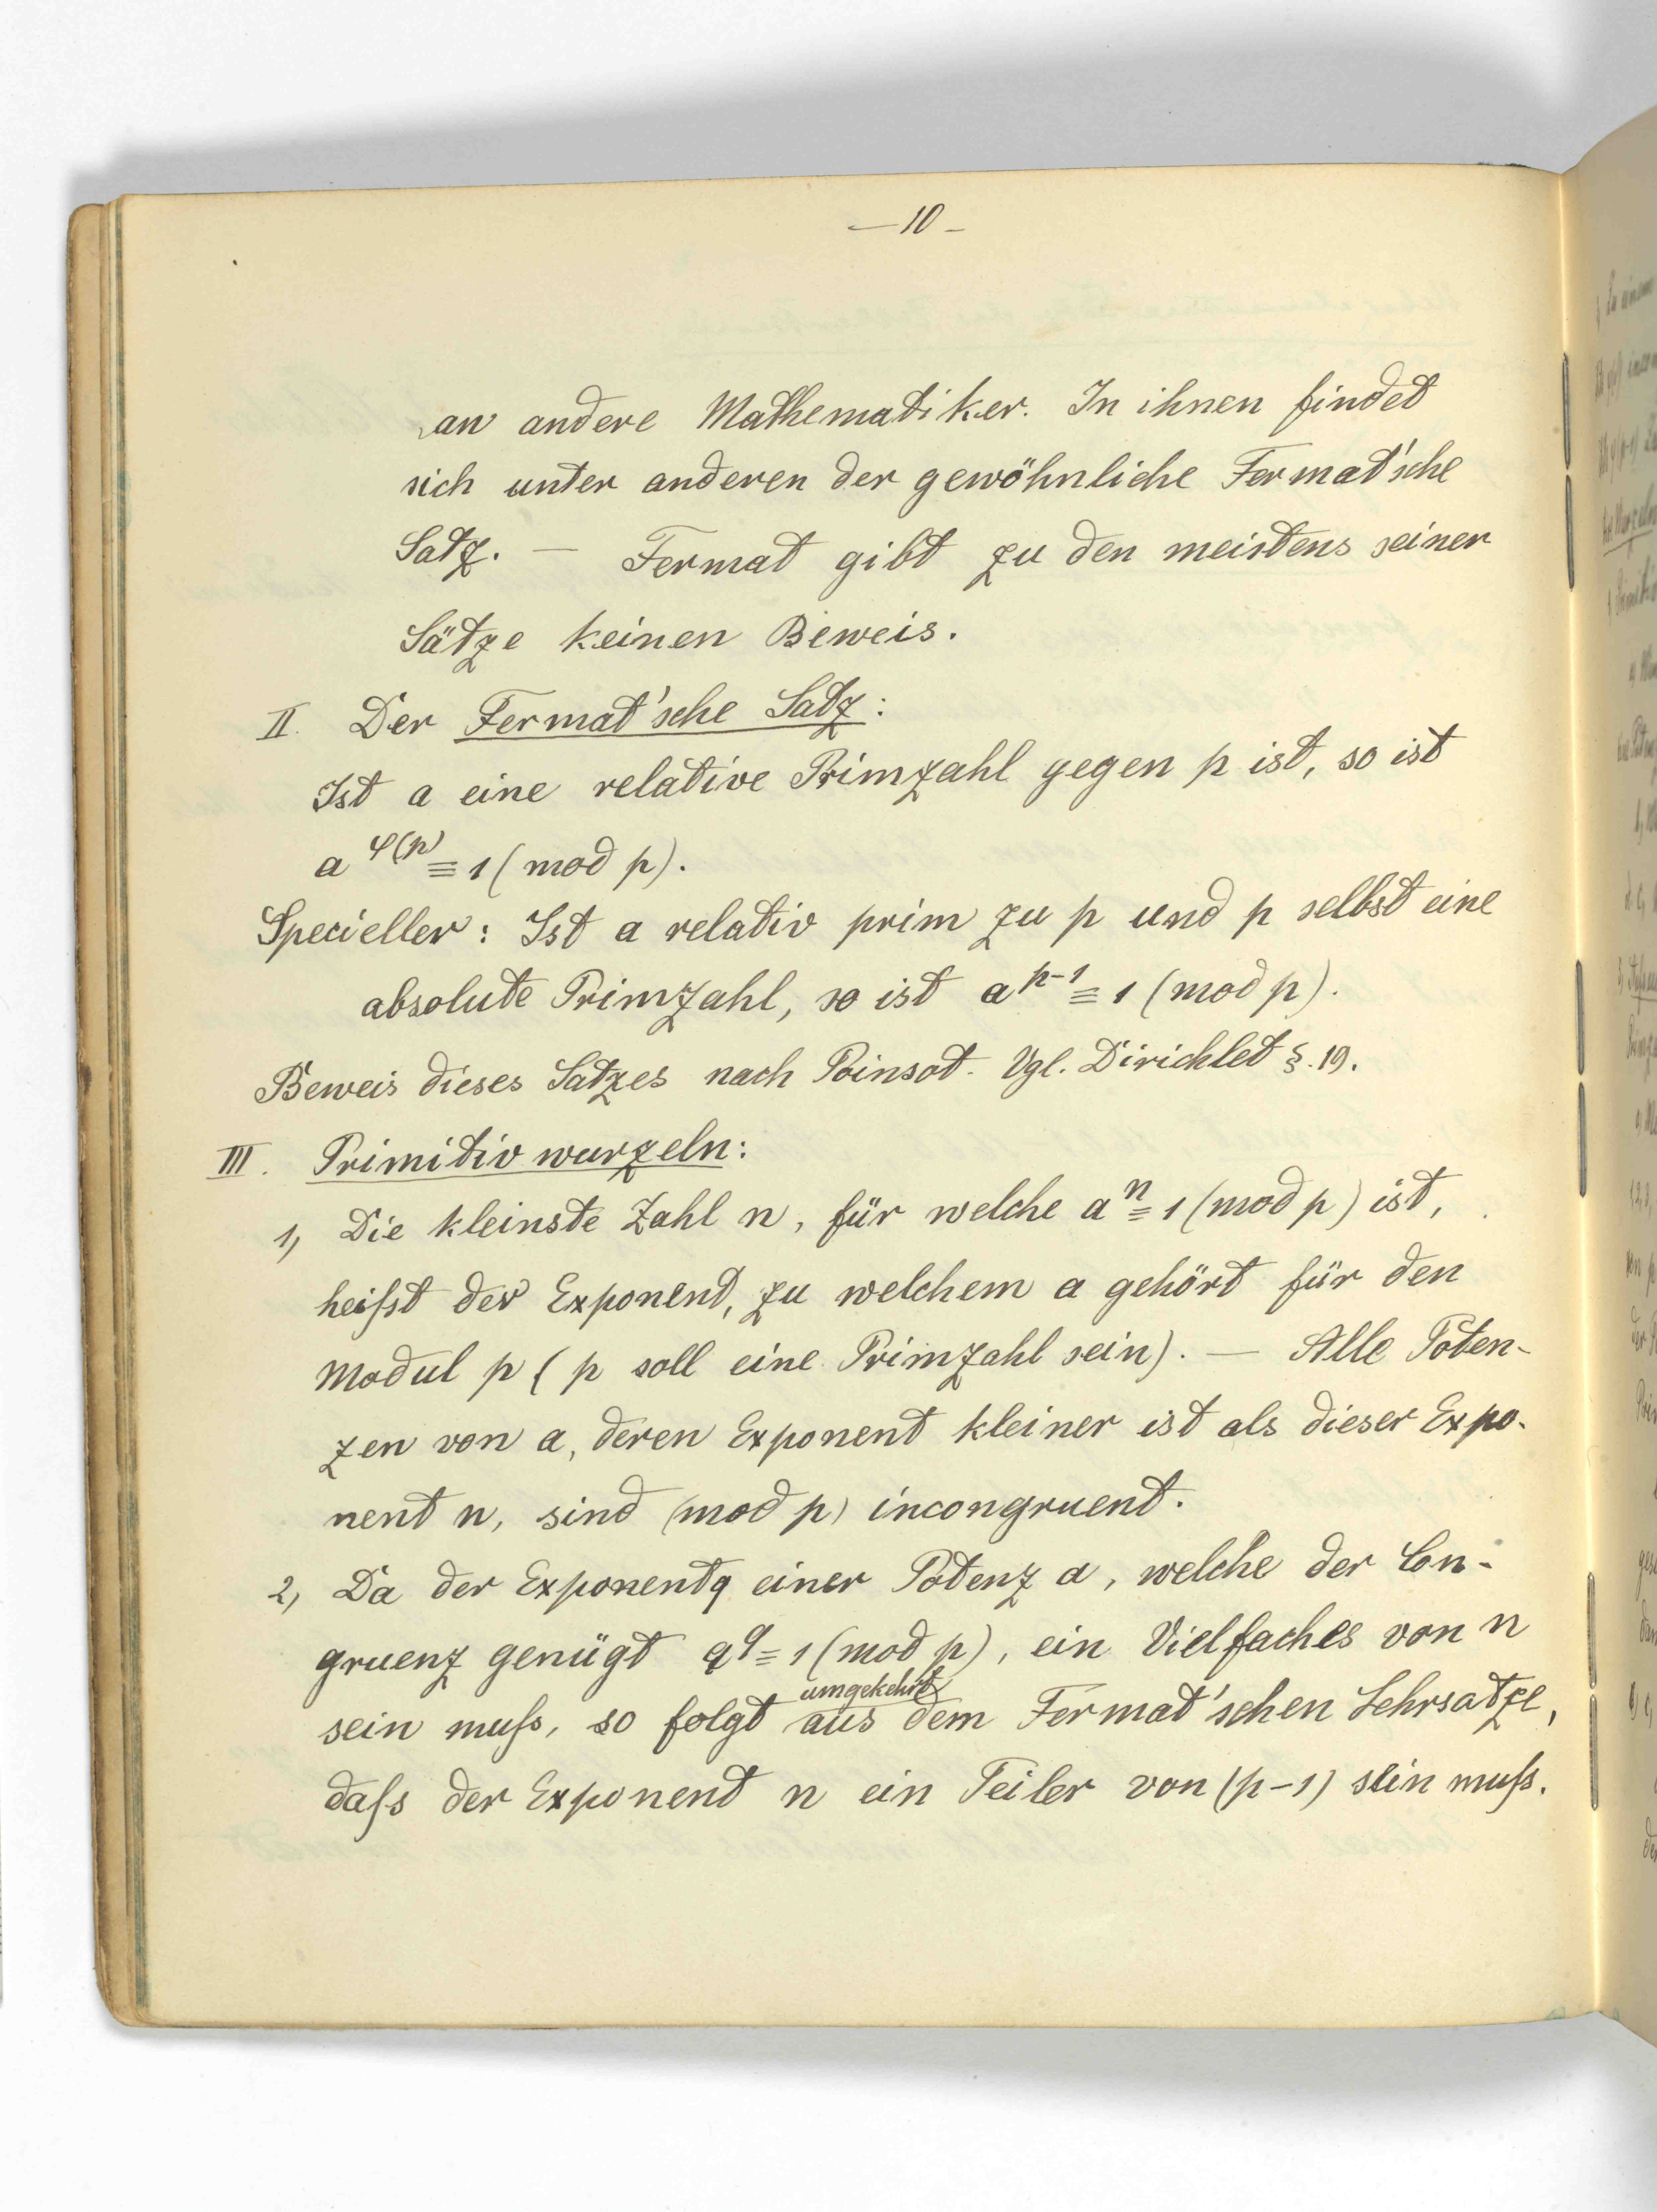 — 10 –
an andere Mathematiker. In ihnen findet
sich unter anderen der gewöhnliche Fermat'sche
Satz. — Fermat gibt zu den meistens seiner
Sätze keinen Beweis.
II. Der Fermat'sche Satz:
Ist a eine relative Primzahl gegen p ist, so ist
a^φ(p) ≡ 1 (mod p).
Specieller: Ist a relativ prim zu p und p selbst eine
absolute Primzahl, so ist a^p-1 ≡ 1 (mod p).
Beweis dieses Satzes nach Poinsot. Vgl. Dirichlet §. 19.
III. Primitivwurzeln:
1, Die kleinste Zahl n, für welche a^n ≡ 1 (mod p) ist,
heißt der Exponent, zu welchem a gehört für den
Modul p (p soll eine Primzahl sein). — Alle Poten-
zen von a, deren Exponent kleiner ist als dieser Expo-
nent n, sind (mod p) incongruent.
2, Da der Exponent q einer Potenz a, welche der Con-
gruenz genügt a^q ≡ 1 (mod p), ein Vielfaches von n
umgekehrt
sein muß, so folgt aus dem Fermat'schen Lehrsatze,
daß der Exponent n ein Teiler von (p-1) sein muß.